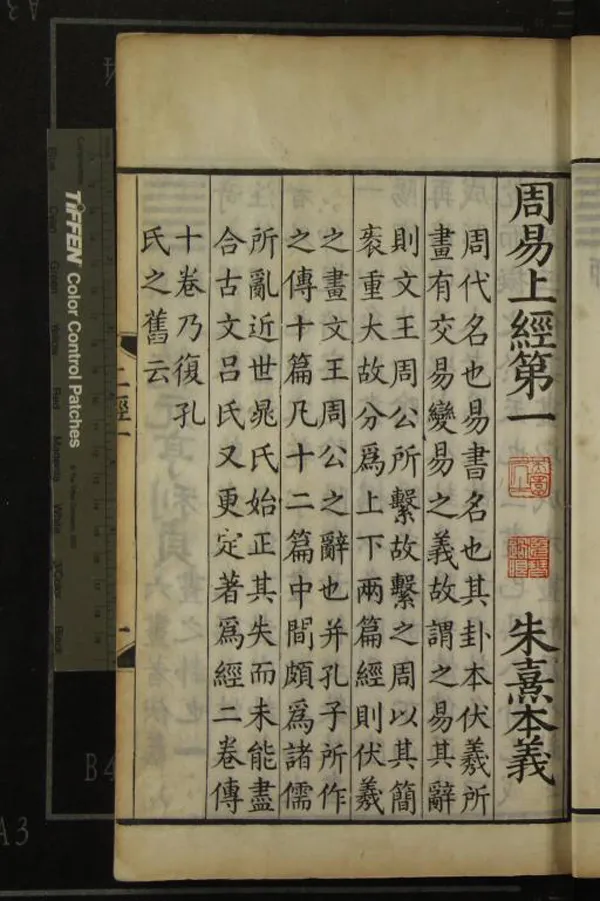 周易上經第一
朱熹本義
周代名也易書名也其卦本伏羲所
畫有交易變易之義故謂之易其辭
則文王周公所繫故繫之周以其簡
袠重大故分爲上下兩篇經則伏羲
之畫文王周公之辭也并孔子所作
之傳十篇凡十二篇中間頗爲諸儒
所亂近世晁氏始正其失而未能盡
合古文呂氏又更定著爲經二卷傳
十卷乃復孔
氏之舊云
TIFFEN Color Control Patches
B4
A3
A3